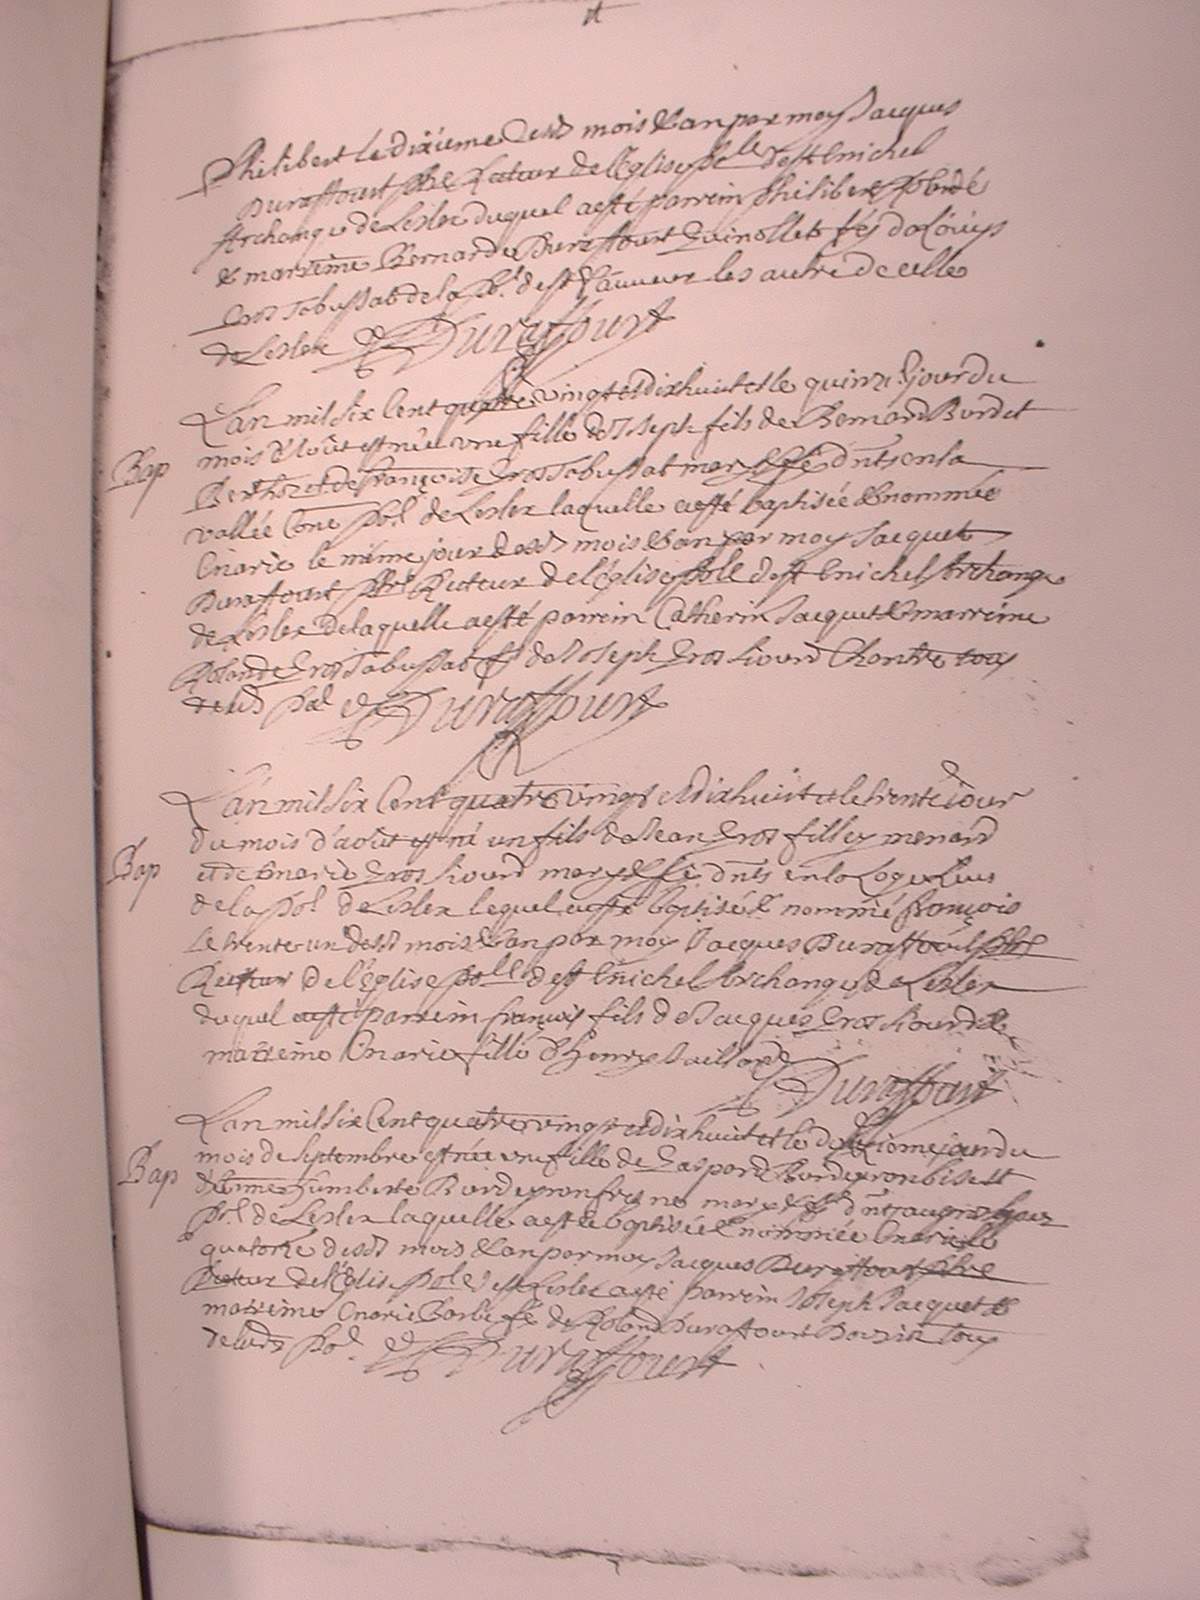 Philibert le dixieme desd mois & an par moy Jacques
Duraffourt Pbre Recteur de l'Eglise polle de st Michel
Archange de Lesler duquel a esté parrein Philibert
& marreine Bernarde Duraffourt Quinollet fe de Loüys
Gros Tabussat de la po. de st Sauveur les autre de celle
de Lesler Duraffourt
L'an mil six Cent quatre vingt et dixhuict et le quinz.e jour du
Bap
mois d'Août est née une fille de Joseph fils de Bernard Burdet
Berthozet de Françoise Gros Tabussat maryé & fe dnts en la
vallée Cone pol de Lesler laquelle a esté baptisée & nommée
Marie le même jour desd mois & an par moy Jacques
Duraffourt Pbre Recteur de l'église polle de st Michel Archange
de Lesler de laquelle a esté parrein Catherin Jacquet & marreine
Rolande Gros Tabussat fe de Joseph Gros Liourd Chontre tous
de lad pol Duraffourt
L'an mil six Cent quatre vingt et dixhuict et le trente jour
du mois d'août est né un fils de Jean Gros filley menard
Bap
et de Marie Gros Liourd maryé & fe dnts en la
de la pol de Lesler lequel a esté baptisé & nommé François
le trente un desd mois & an par moy Jacques Duraffourt Pbre
Recteur de l'église polle de st Michel Archange de Lesler
duquel a esté parrein françois fils de Jacques Gros Liourd &
marreine Marie fille d'Henry Paillard
Duraffourt
L'an mil six Cent quatre vingt et dixhuict et le douzieme jour du
mois de Septembre est née une fille de Gaspard Burdeyron bisett
Bap
d'Enne humberte Burdeyron maryé & fe dnts au gros
po. de Lesler laquelle a esté baptisée & nommée Marie le
quatorze desd mois & an par moy Jacques Duraffourt Pbre
Recteur de l'église pole de st Lesler a esté parrein Joseph Jacquet &
marreine Marie Barbe fe de Roland Duraffourt tous
de lad po. Duraffourt